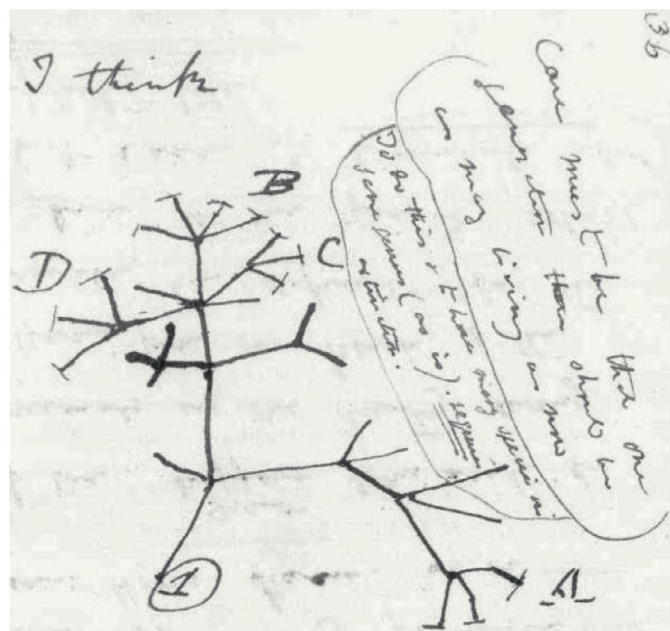 I think
B
C
D
A
1
36
Case must be that one
generation then should be
as many living as now
To do this & to have many species in
same genus (as is) requires
extinction.